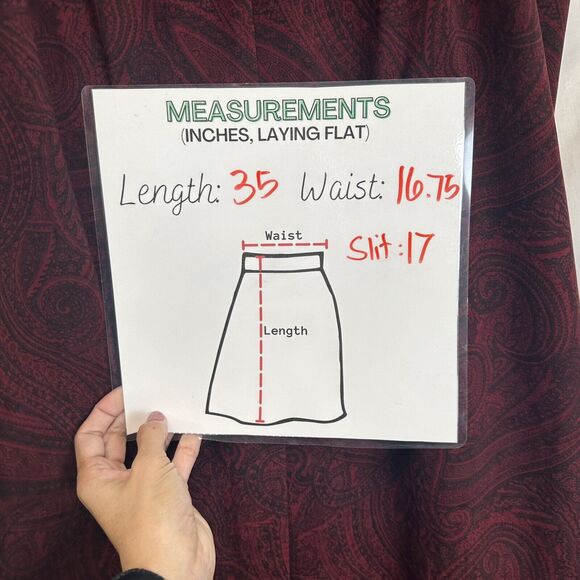 MEASUREMENTS
(INCHES, LAYING FLAT)
Length: 35 Waist: 16.75
Slit: 17
Waist
Length